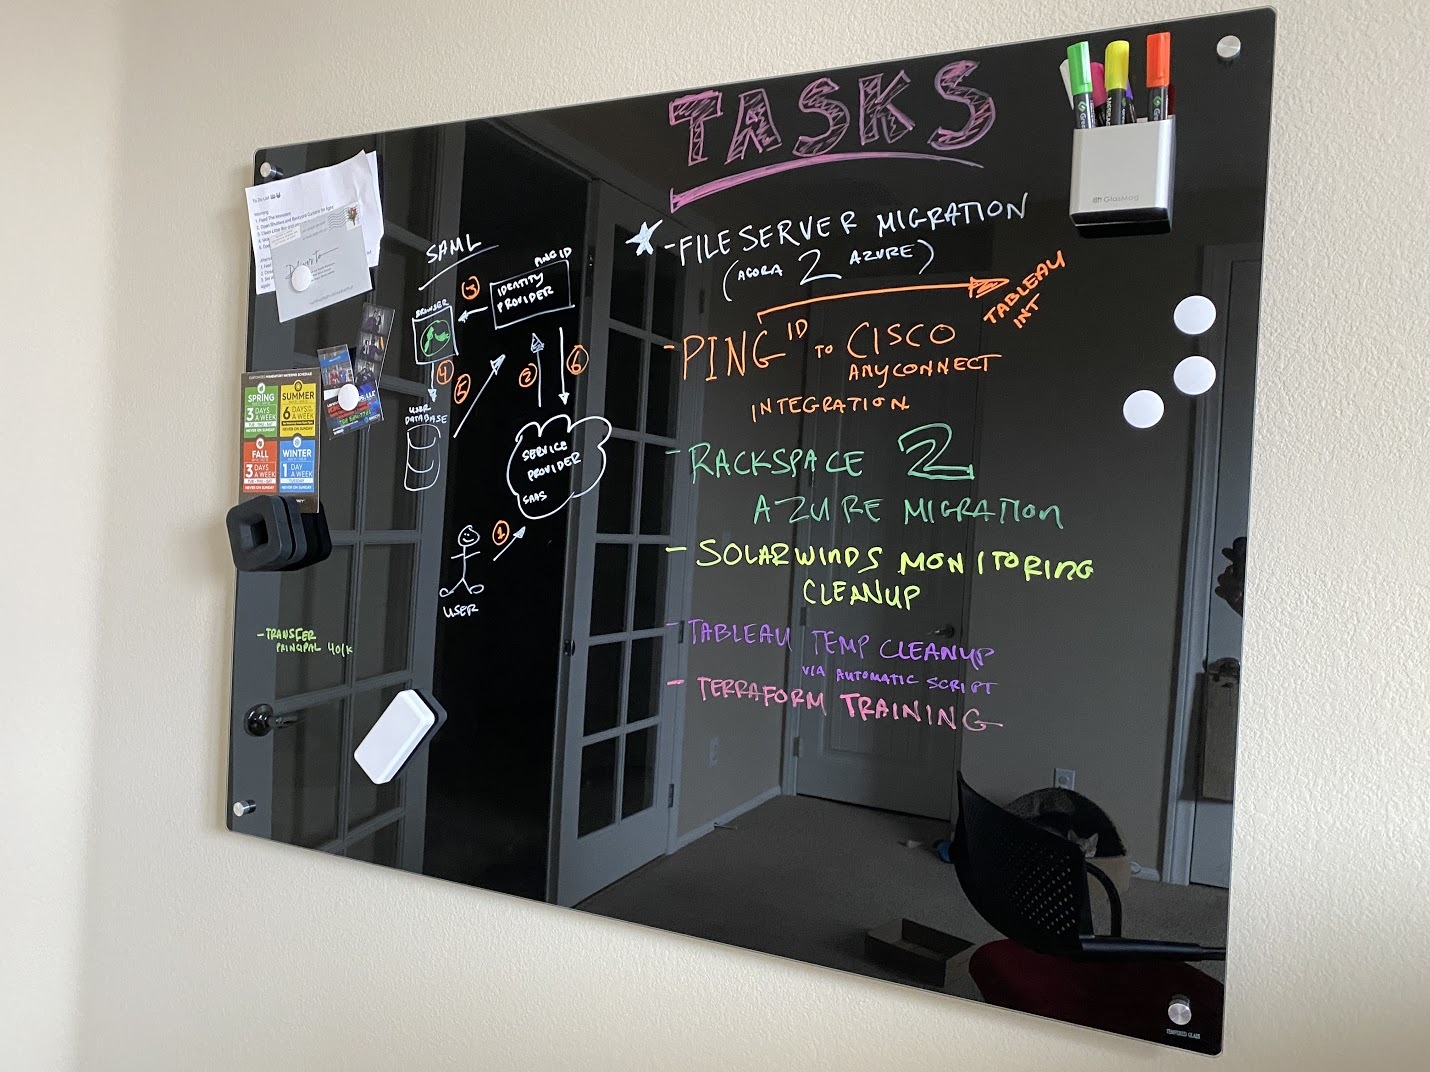 TASKS
- FILESERVER MIGRATION
(AGORA 2 AZURE)
TABLEAU
INT
- PING ID TO CISCO
ANYCONNECT
INTEGRATION
- RACKSPACE 2
AZURE MIGRATION
- SOLARWINDS MONITORING
CLEANUP
- TABLEAU TEMP CLEANUP
VIA AUTOMATIC SCRIPT
- TERRAFORM TRAINING
SAML
PING ID
IDENTITY
PROVIDER
3
BROWSER
4
5
2
6
USER
DATABASE
SERVICE
PROVIDER
SAAS
1
USER
- TRANSFER
PRINCIPAL 401K
To Do List
Morning
SPRING
3 DAYS
A WEEK
NEVER ON SUNDAY
SUMMER
6 DAYS
A WEEK
NEVER ON SUNDAY
FALL
3 DAYS
A WEEK
NEVER ON SUNDAY
WINTER
1 DAY
A WEEK
NEVER ON SUNDAY
GlasMag
TEMPERED GLASS